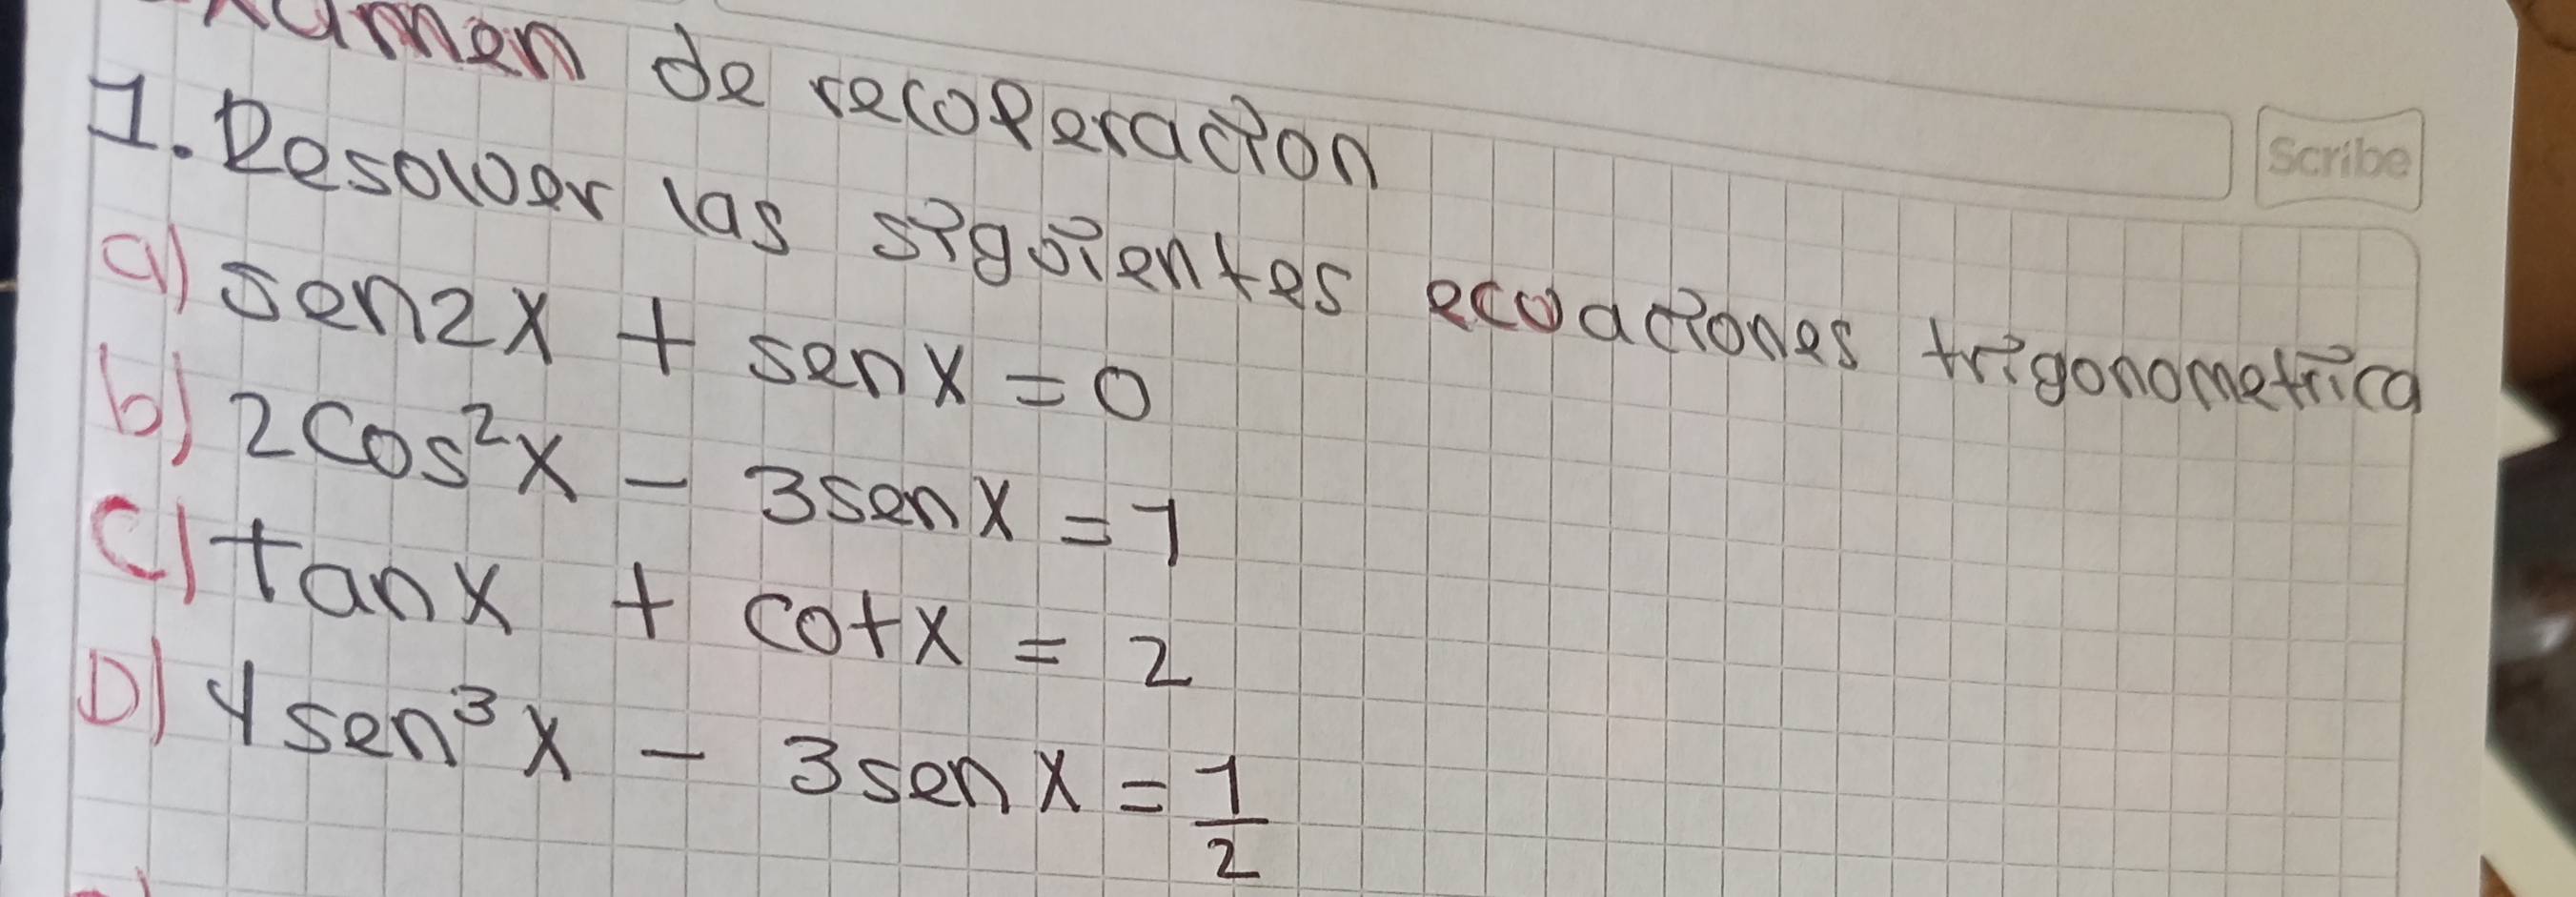 examen de recuperacion
Scribe
1. Resolver las siguientes ecuaciones trigonometrica
a) sen2x + senx = 0
b) 2cos²x - 3senx = 1
c) tanx + cotx = 2
D) 4sen³x - 3senx = 1/2